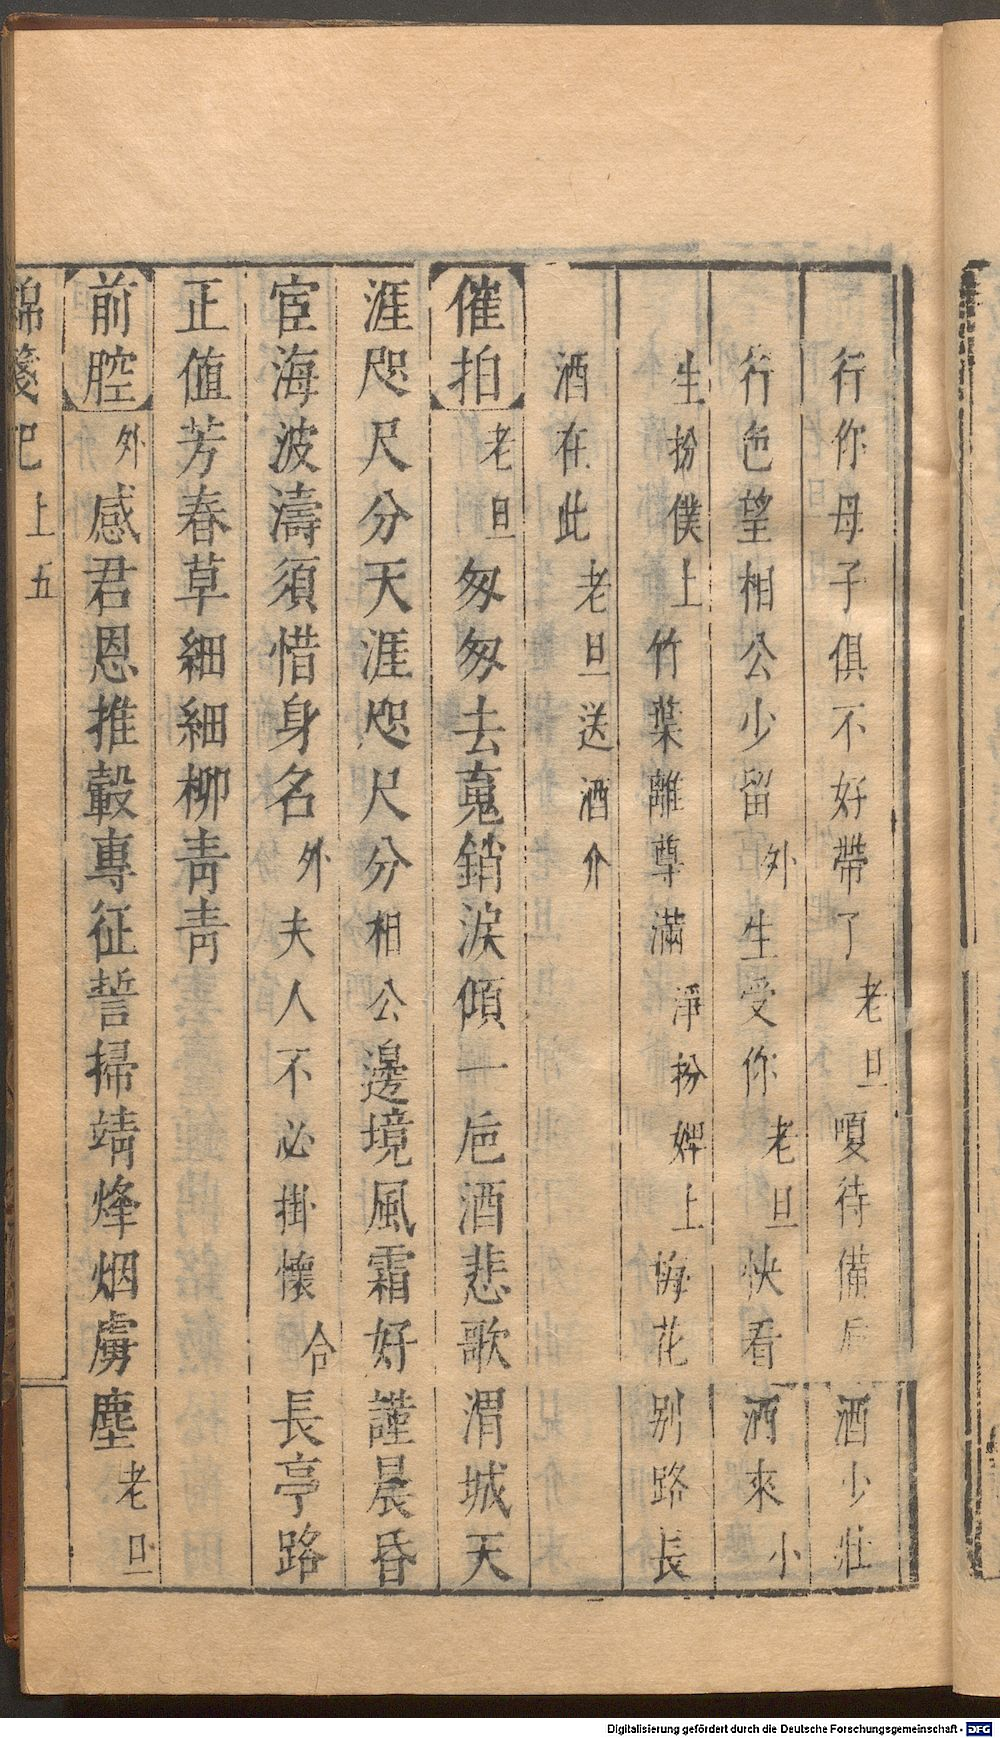 行你母子俱不好帶了老旦嗄待備卮酒少壯
行色望相公少留外生受你老旦快看酒來小
生扮僕上竹葉離尊滿淨扮婢上梅花别路長
酒在此老旦送酒介
催拍老旦匆匆去䰟銷淚傾一卮酒悲歌渭城天
涯咫尺分天涯咫尺分相公邊境風霜好謹晨昏
宦海波濤須惜身名外夫人不必掛懷合長亭路
正値芳春草細細柳青青
前腔外感君恩推轂專征誓掃靖烽烟虜塵老旦
錦箋記上五
Digitalisierung gefördert durch die Deutsche Forschungsgemeinschaft - DFG